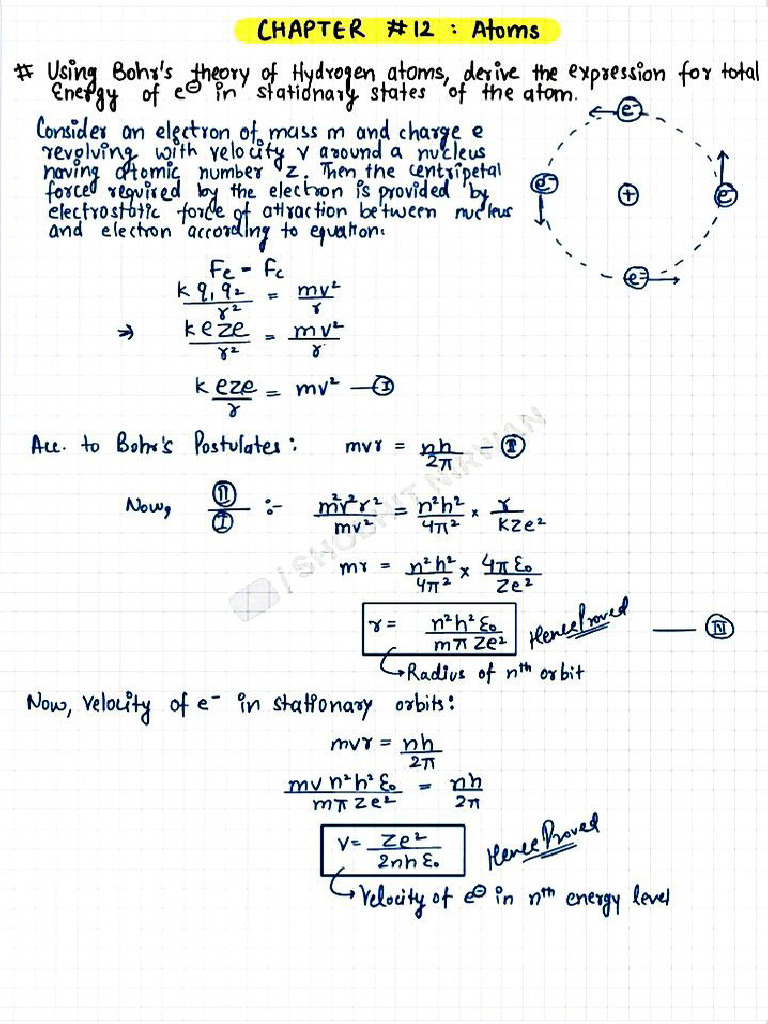 CHAPTER #12 : Atoms
# Using Bohr's theory of Hydrogen atoms, derive the expression for total
Energy of e⊖ in stationary states of the atom.
Consider an electron of mass m and charge e
revolving with velocity v around a nucleus
having atomic number z. Then the centripetal
force required by the electron is provided by
electrostatic force of attraction between nucleus
and electron according to equation:
e-
e-
+
e-
e-
Fe = Fc
k q₁ q₂ / r² = mv² / r
⇒ k e ze / r² = mv² / r
k eze / r = mv² — Ⓘ
Acc. to Bohr's Postulates: mvr = nh / 2π — Ⓘ︎Ⓘ
Now, Ⓘ︎Ⓘ / Ⓘ :- m²v²r² / mv² = n²h² / 4π² × r / kze²
mr = n²h² / 4π² × 4πε₀ / ze²
r = n²h²ε₀ / mπze² Hence Proved — ⓘⓥ
↳ Radius of nth orbit
SHOBHIT NIRWAN
Now, Velocity of e⁻ in stationary orbits:
mvr = nh / 2π
mv n²h²ε₀ / mπze² = nh / 2π
v = ze² / 2nhε₀ Hence Proved
↳ Velocity of e⊖ in nth energy level